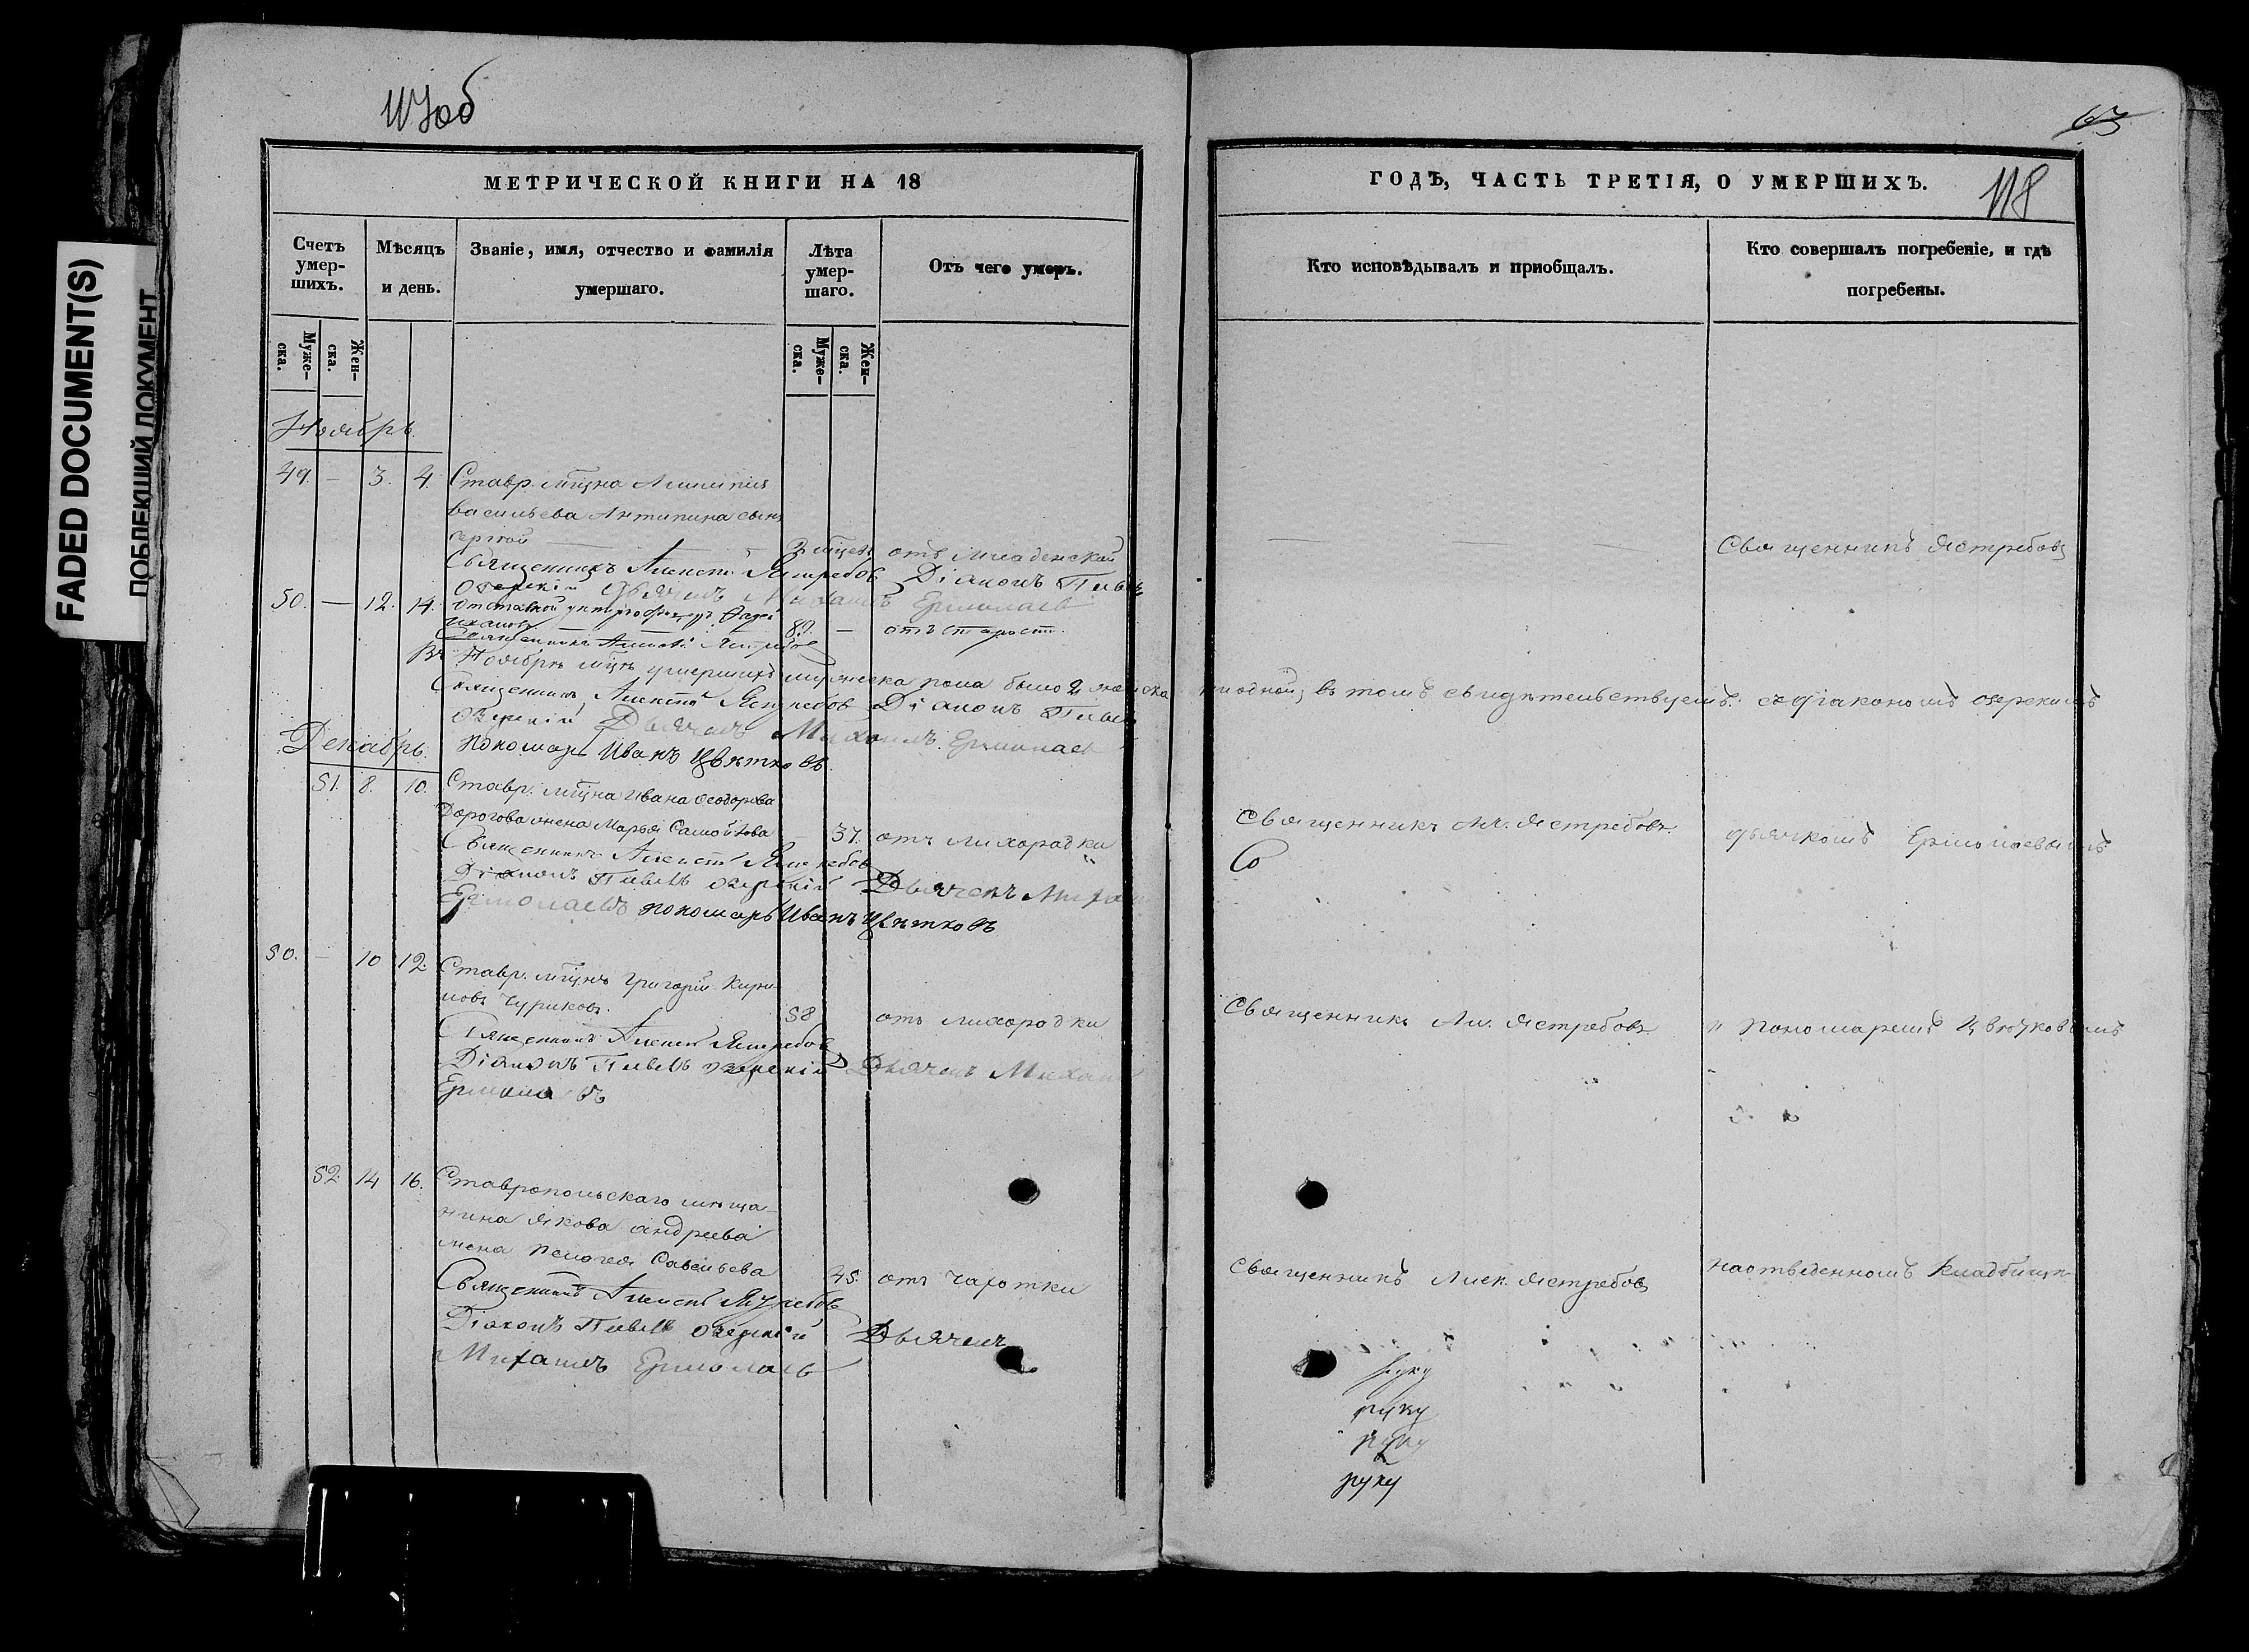 FADED DOCUMENT(S)
ПОБЛЕКШИЙ ДОКУМЕНТ
117об
МЕТРИЧЕСКОЙ КНИГИ НА 18
Счетъ умер-
шихъ.
Мѣсяцъ
и день.
Званіе, имя, отчество и фамилія
умершаго.
Лѣта
умер-
шаго.
Отъ чего умеръ.
Муже-
ска.
Жен-
ска.
Муже-
ска.
Жен-
ска.
Ноябрь.
49. — 3. 4. Ставр. мщна
Васильева Антипина сынъ
Сергѣй
отъ младенской
Священникъ Алексѣй Ястребовъ Діаконъ Павелъ
Озерскій Дьячекъ Михаилъ Ермолаевъ
50. — 12. 14. отставной
— отъ старост.
Священникъ Алексѣй Ястребовъ
Въ Ноябрѣ мцѣ умершихъ мужеска пола было 2 женска
Священникъ Алексѣй Ястребовъ Діаконъ Павелъ
Озерскій Дьячекъ Михаилъ Ермолаевъ
Декабрь. пономарь Иванъ Цвѣтковъ
51. 8. 10. Ставр. мщна Ивана Ѳеодорова
Дорогова жена Марья Самойлова — 37. отъ лихорадки
Священникъ Алексѣй Ястребовъ
Діаконъ Павелъ Озерскій Дьячекъ Михаилъ
Ермолаевъ пономарь Иванъ Цвѣтковъ
50. — 10 12. Ставр. мщнъ Григорій Кири-
ловъ Чуриковъ. 58 отъ лихорадки
Священникъ Алексѣй Ястребовъ
Діаконъ Павелъ Озерскій Дьячекъ Михаилъ
Ермолаевъ
52 14 16. Ставропольскаго мѣща-
нина Якова Андреева
жена Пелагея Савельева 45. отъ чахотки
Священникъ Алексѣй Ястребовъ
Діаконъ Павелъ Озерскій Дьячекъ
Михаилъ Ермолаевъ
63
118
ГОДѢ, ЧАСТЬ ТРЕТІЯ, О УМЕРШИХЪ.
Кто исповѣдывалъ и приобщалъ.
Кто совершалъ погребеніе, и гдѣ
погребены.
— — — Священникъ Ястребовъ
ни одной, въ томъ свидѣтельствуемъ. съ діакономъ Озерскимъ
Священникъ Ал. Ястребовъ. дьячкомъ Ермолаевымъ
Со
Священникъ Ал. Ястребовъ и пономаремъ Цвѣтковымъ
Священникъ Алек. Ястребовъ на отведенномъ кладбищѣ
руку
руку
руку
руку